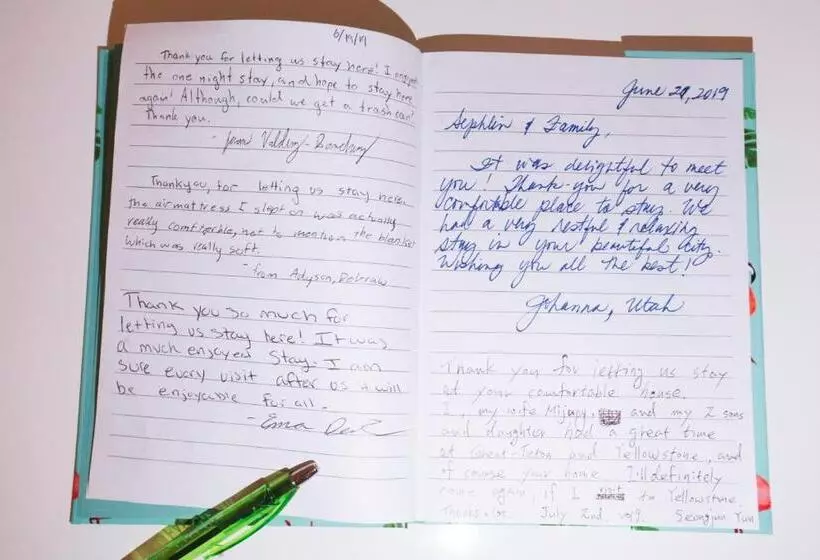 6/19/19
Thank you for letting us stay here! I enjoyed
the one night stay, and hope to stay here
again! Although, could we get a trash can?
Thank you.
- from
Thankyou, for letting us stay here,
the airmattress I slept on was actually
really comfterble, not to mention the blanket
which was really soft.
- from Adyson,
Thank you so much for
letting us stay here! It was
a much enjoyed stay. I am
sure every visit after us will
be enjoyable for all.
- Ema
June 21, 2019
& Family,
It was delightful to meet
you! Thank-you for a very
comfortable place to stay. We
had a very restful & relaxing
stay in your beautiful city.
Wishing you all the best!
Johanna, Utah
Thank you for letting us stay
at your comfortable house.
I, my wife Mijung, and my 2 sons
and daughter had a great time
at Great-Teton and Yellowstone, and
of course your home I'll definitely
come again, if I visit to Yellowstone
July 2nd Seongjun Yun